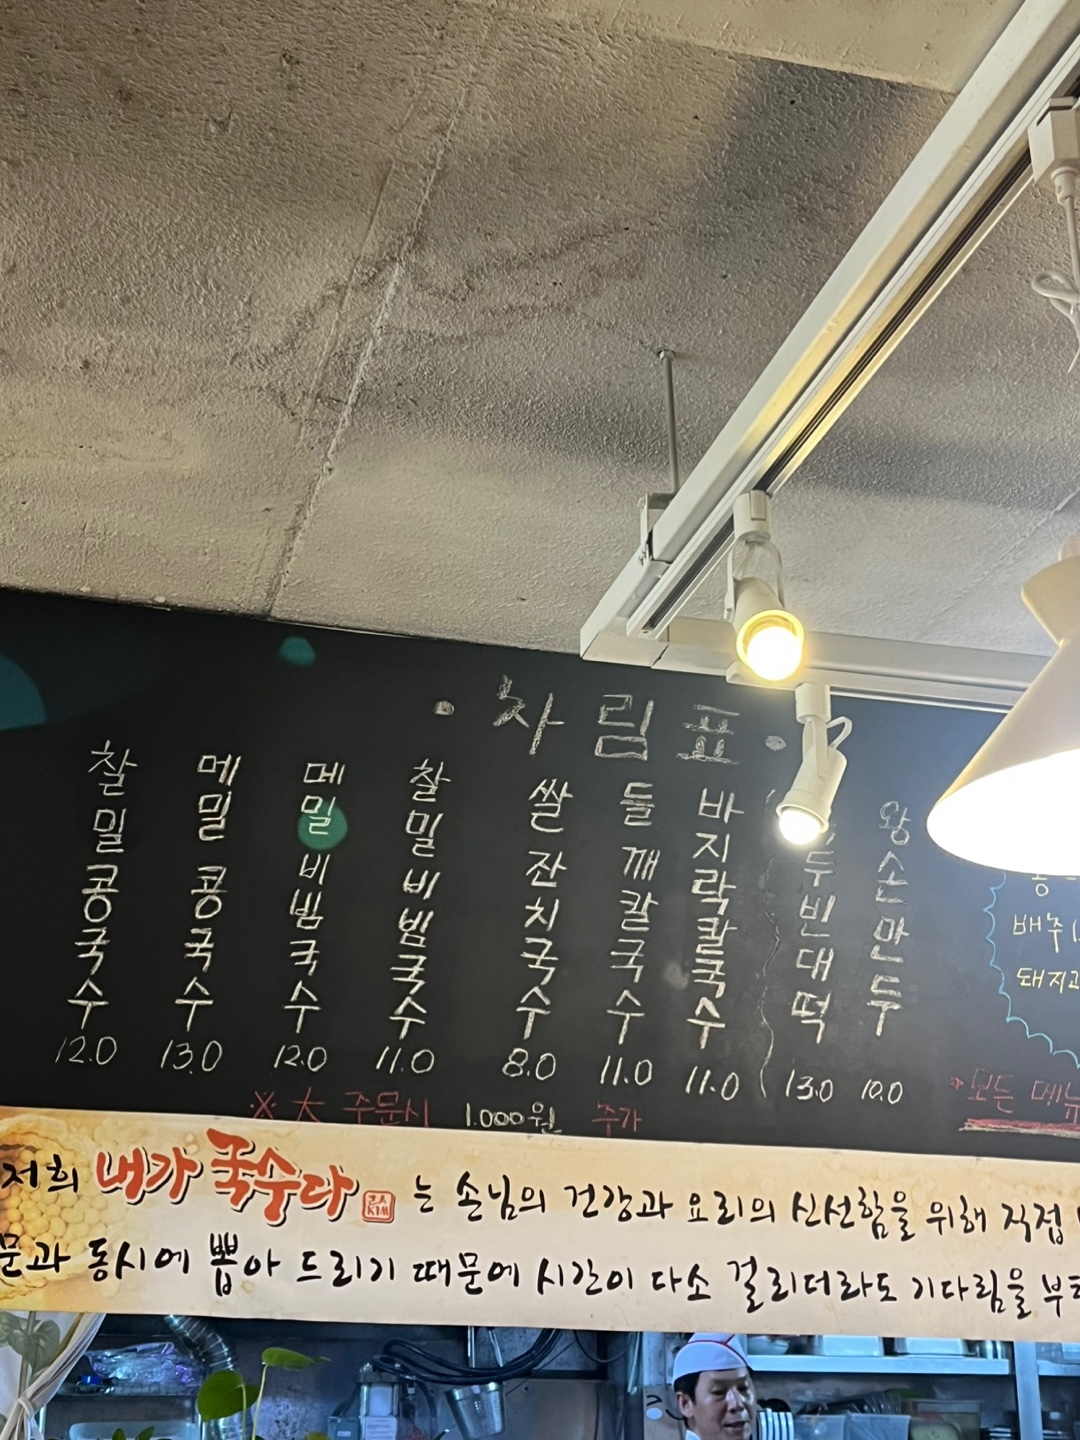 · 차림표 ·
찰밀콩국수 12.0
메밀콩국수 13.0
메밀비빔국수 12.0
찰밀비빔국수 11.0
쌀잔치국수 8.0
들깨칼국수 11.0
바지락칼국수 11.0
두빈대떡 13.0
왕손만두 10.0
배추
돼지고
모든 메뉴
※ 大 주문시 1.000원 추가
저희 내가 국수다 는 손님의 건강과 요리의 신선함을 위해 직접
문과 동시에 뽑아 드리기 때문에 시간이 다소 걸리더라도 기다림을 부